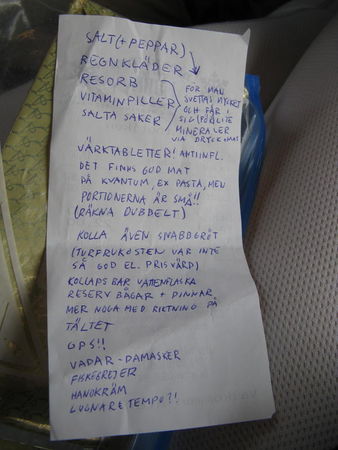 SALT (+ PEPPAR)
REGNKLÄDER
RESORB
VITAMINPILLER
SALTA SAKER
FÖR MAN
SVETTAS MYCKET
OCH FÅR I
SIG FÖR LITE
MINERALER
VIA DRYCK OCH MAT
VÄRKTABLETTER! ANTIINFL.
DET FINNS GOD MAT
PÅ KVANTUM, EX PASTA, MEN
PORTIONERNA ÄR SMÅ!!
(RÄKNA DUBBELT)
KOLLA ÄVEN SNABBGRÖT
(TURFRUKOSTEN VAR INTE
SÅ GOD EL. PRISVÄRD)
KOLLAPSBAR VATTENFLASKA
RESERV BÅGAR + PINNAR
MER NOGA MED RIKTNING PÅ
TÄLTET
GPS!!
VADAR-DAMASKER
FISKEGREJER
HANDKRÄM
LUGNARE TEMPO?!